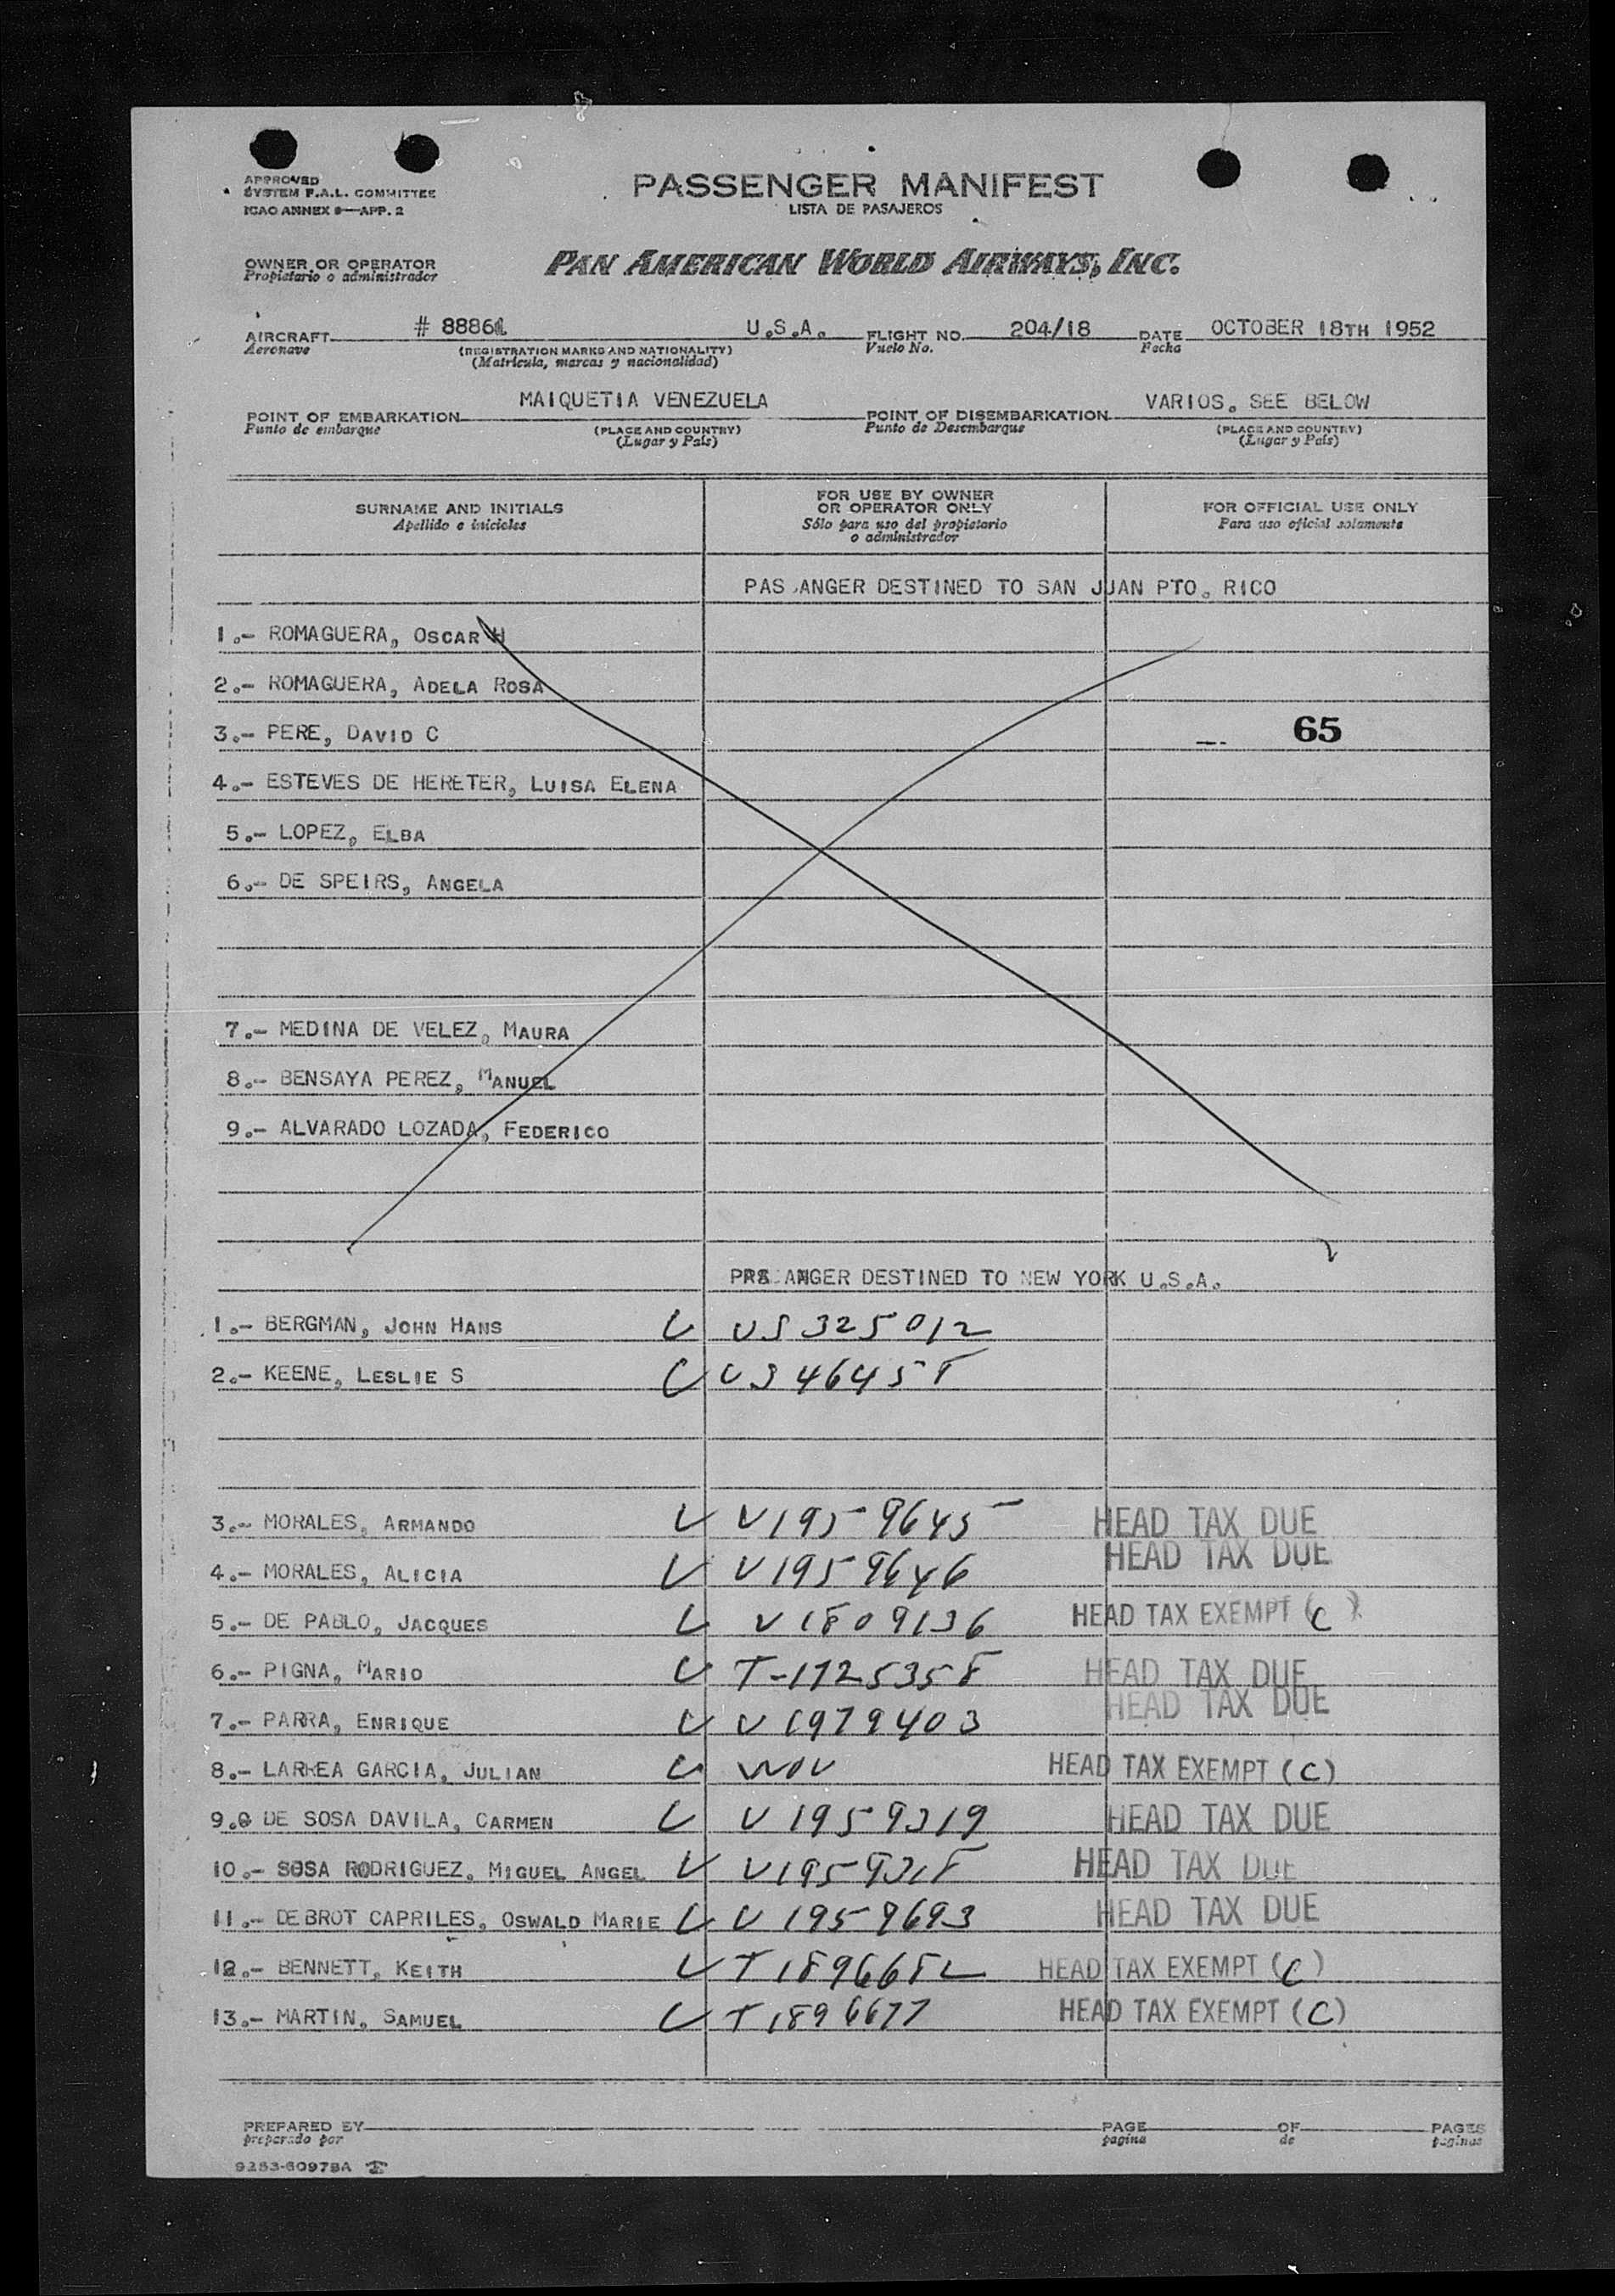 APPROVED
SYSTEM F.A.L. COMMITTEE
ICAO ANNEX 9—APP. 2
PASSENGER MANIFEST
LISTA DE PASAJEROS
OWNER OR OPERATOR
Propietario o administrador
PAN AMERICAN WORLD AIRWAYS, INC.
AIRCRAFT # 88861 U.S.A. FLIGHT NO. 204/18 DATE OCTOBER 18TH 1952
Aeronave (REGISTRATION MARKS AND NATIONALITY) Vuelo No. Fecha
(Matrícula, marcas y nacionalidad)
POINT OF EMBARKATION MAIQUETIA VENEZUELA POINT OF DISEMBARKATION VARIOS. SEE BELOW
Punto de embarque (PLACE AND COUNTRY) Punto de Desembarque (PLACE AND COUNTRY)
(Lugar y País) (Lugar y País)
SURNAME AND INITIALS
Apellido e iniciales
FOR USE BY OWNER
OR OPERATOR ONLY
Sólo para uso del propietario
o administrador
FOR OFFICIAL USE ONLY
Para uso oficial solamente
PAS ANGER DESTINED TO SAN JUAN PTO. RICO
1.- ROMAGUERA, OSCAR H
2.- ROMAGUERA, ADELA ROSA
3.- PERE, DAVID C 65
4.- ESTEVES DE HERETER, LUISA ELENA
5.- LOPEZ, ELBA
6.- DE SPEIRS, ANGELA
7.- MEDINA DE VELEZ, MAURA
8.- BENSAYA PEREZ, MANUEL
9.- ALVARADO LOZADA, FEDERICO
ANGER DESTINED TO NEW YORK U.S.A.
1.- BERGMAN, JOHN HANS US 325012
2.- KEENE, LESLIE S US 464458
3.- MORALES, ARMANDO V V1959645 HEAD TAX DUE
4.- MORALES, ALICIA V V1959646 HEAD TAX DUE
5.- DE PABLO, JACQUES V 1809136 HEAD TAX EXEMPT (C)
6.- PIGNA, MARIO T-1725358 HEAD TAX DUE
7.- PARRA, ENRIQUE V 1979403 HEAD TAX DUE
8.- LARREA GARCIA, JULIAN HEAD TAX EXEMPT (C)
9. DE SOSA DAVILA, CARMEN V 1959319 HEAD TAX DUE
10.- SOSA RODRIGUEZ, MIGUEL ANGEL V1959318 HEAD TAX DUE
11.- DEBROT CAPRILES, OSWALD MARIE V 1959693 HEAD TAX DUE
12.- BENNETT, KEITH T 1896682 HEAD TAX EXEMPT (C)
13.- MARTIN, SAMUEL T 1896677 HEAD TAX EXEMPT (C)
PREPARED BY PAGE OF PAGES
preparado por pagina de páginas
9253-60978A